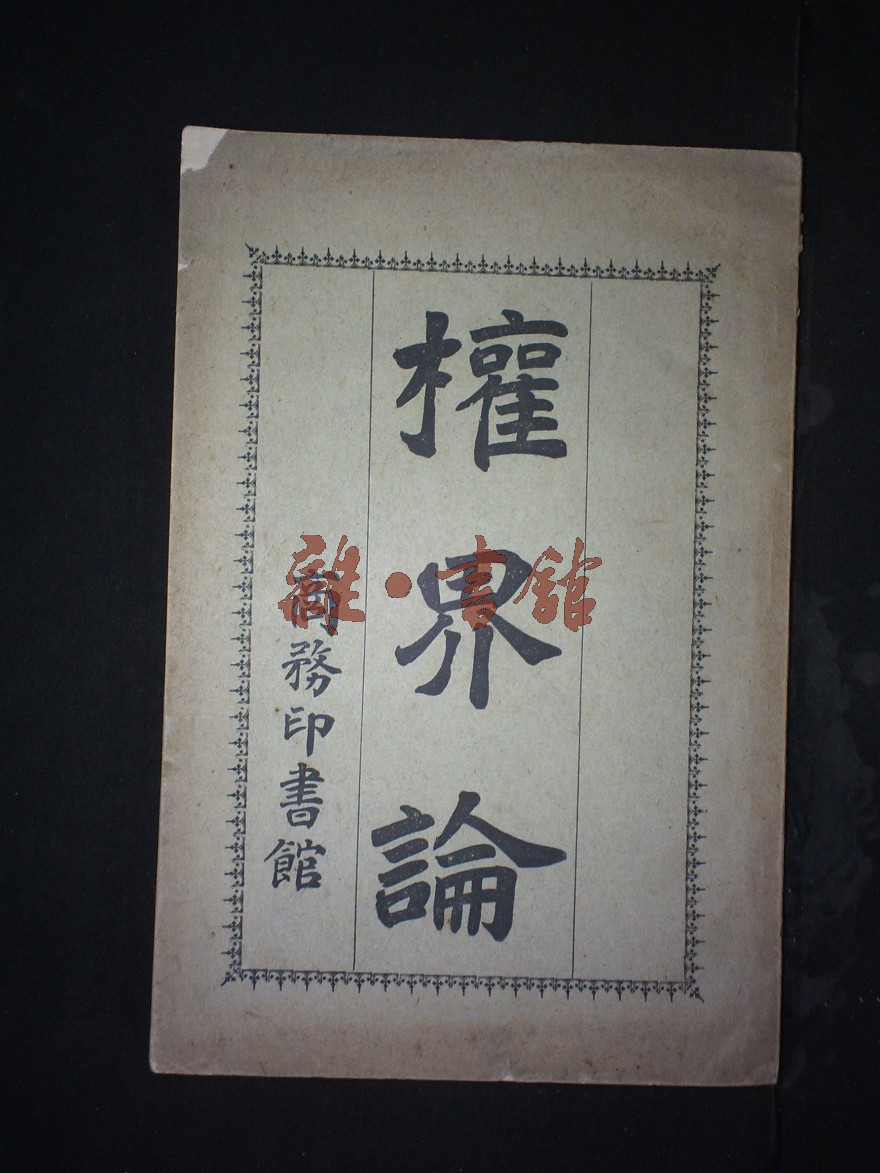 權界論
商務印書館
雒·書館